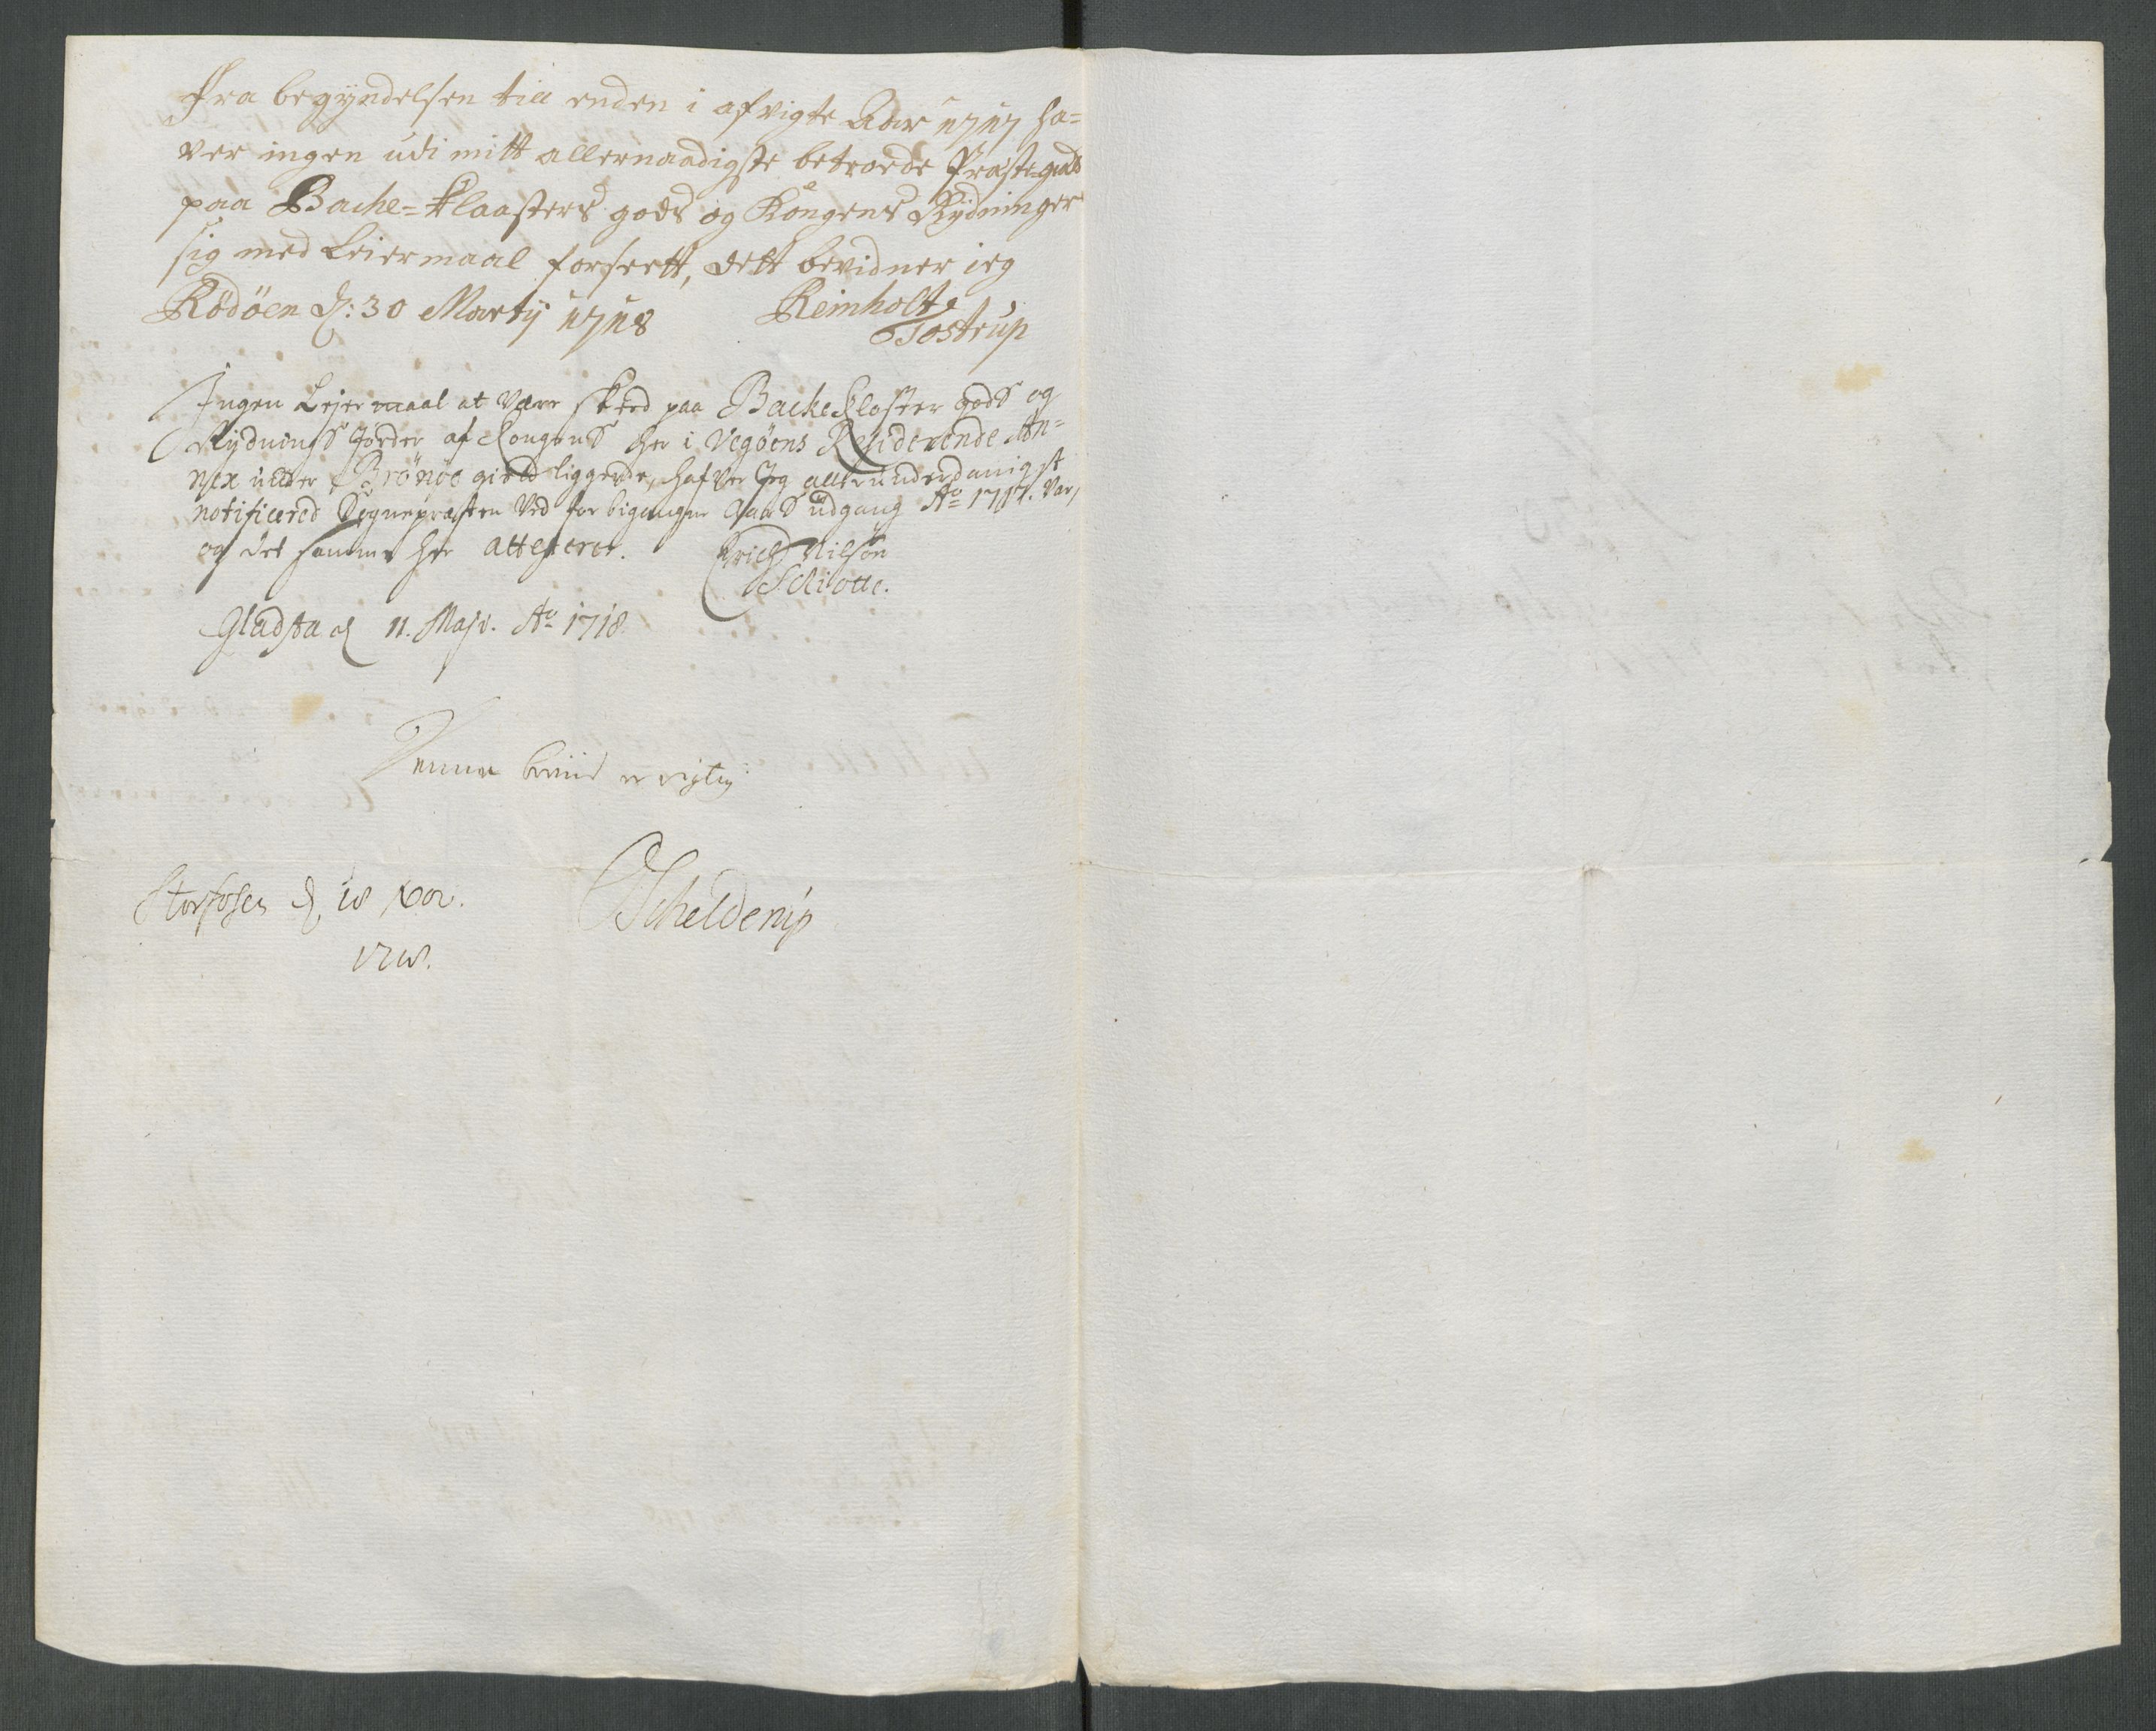 Fra begyndelsen till enden i afvigte Aar 1717 ha-
ver ingen udi mitt allernaadigste betroede Præste-gield
paa Bache-Klaasters gods og Kongens Rydninger
sig med Leiermaal forseett, dett bevidner ieg
Rödöen d: 30 Martij 1718 Reinholt
Tostrup
Ingen Lejermaal at være skeed paa Backe Closter gods og
Rydnings Jorder af Kongens her i Vegöens Residerende An-
nex under Brönöe gield liggende, hafver Jeg allerunderdanigst
notificered Sognepræsten ved forbigangne Aars udgang Ao 1717. var,
og det samme her attesterer. Erich Nilsön
Schiötte.
Gladstad 11. Maji. Ao 1718.
Denne beviis er rigtig
Storfosen d. 18 Xbr.
1718.
Schelderup